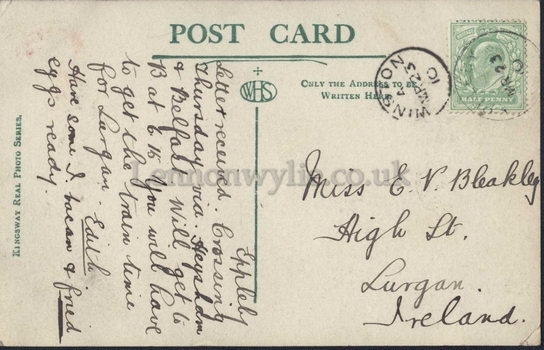 POST CARD
WHS
ONLY THE ADDRESS TO BE
WRITTEN HERE
HALF PENNY
WINSTON
MR 23
10
MR 23
10
KINGSWAY REAL PHOTO SERIES.
Eppleby
Letter received. Crossing
Thursday via Heysham
& Belfast. Will get to
B at 6.15 You will have
to get the train time
for Lurgan. Edith.
Have some I. bacan & fried
eggs ready.
Miss E. V. Bleakley
High St.
Lurgan.
Ireland.
Lennonwylie.co.uk